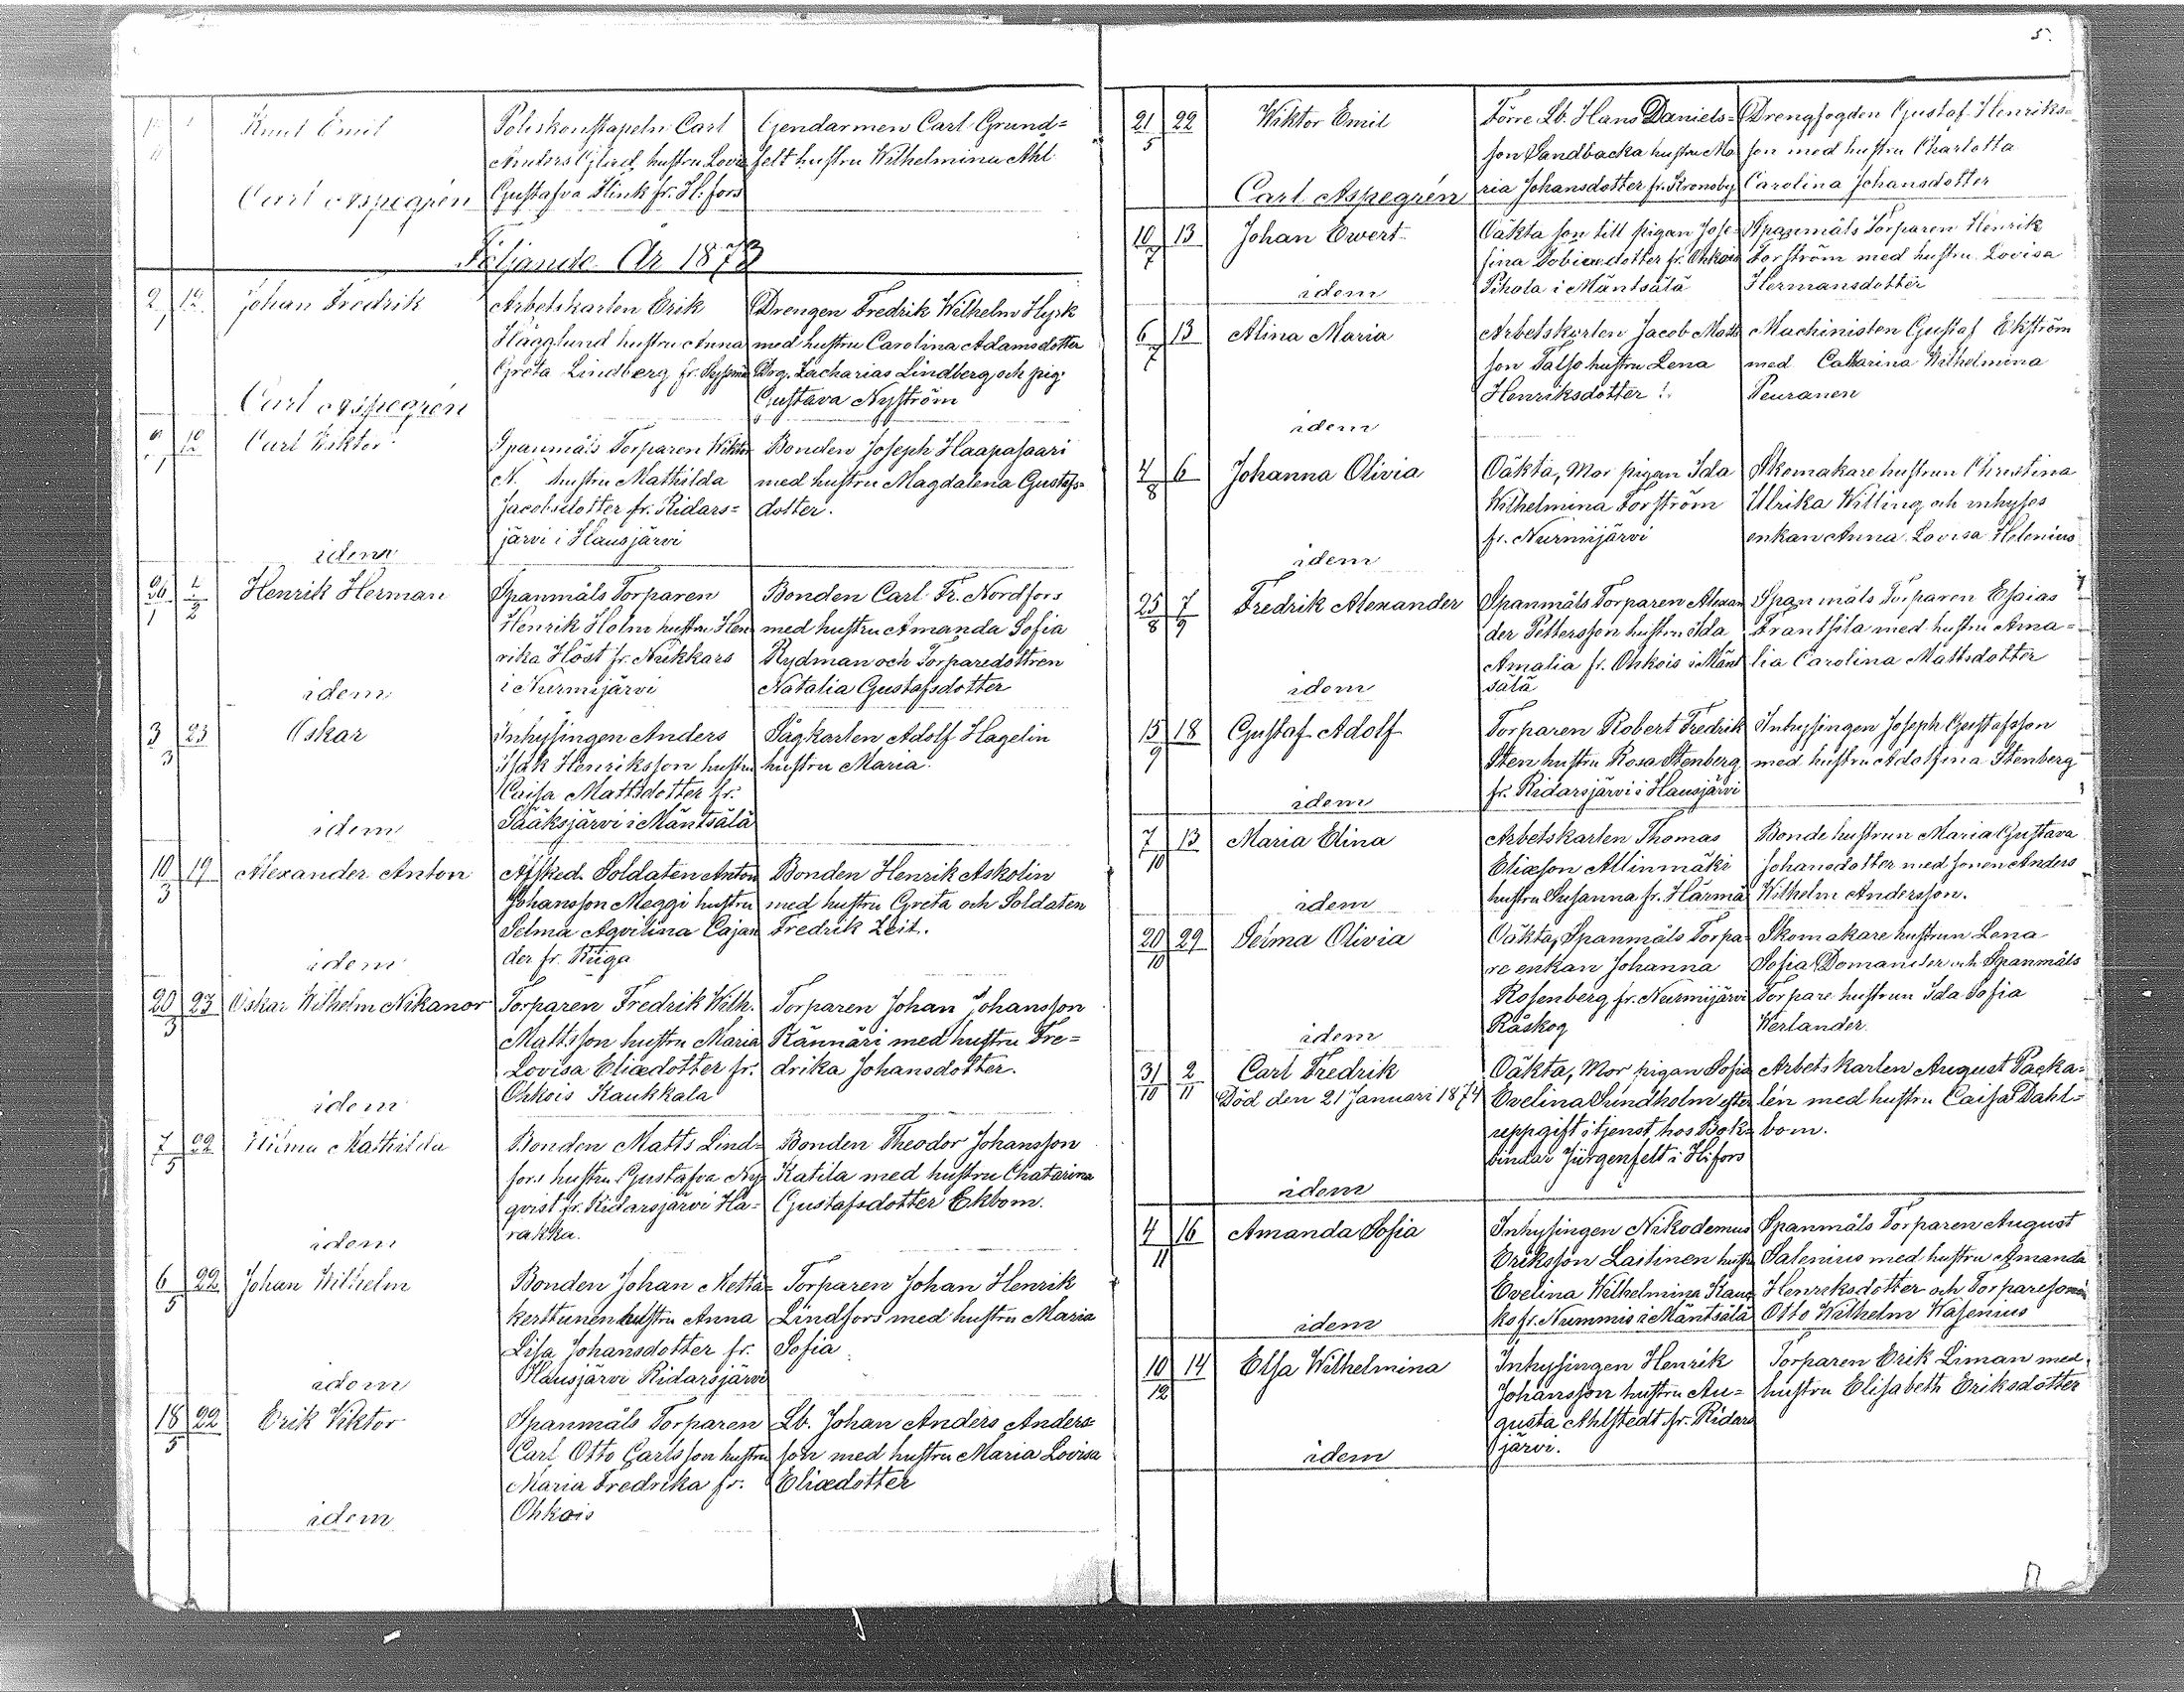 5.
Knut Emil
Poliskonstapeln Carl
Gendarmen Carl Grund=
Anders hustru Lovi
felt hustru Wilhelmina Ahl
Gustafva Flink fr. H:fors
Carl Aspegrén
Följande År 1873
2/1 12 Johan Fredrik
Arbetskarlen Erik
Hägglund hustru Anna
Greta Lindberg fr.
Drengen Fredrik Wilhelm Hyrk
med hustru Carolina Adamsdotter
Drg. Zacharias Lindberg och pig.
Gustava Nyström
Carl Aspegrén
12 Carl Wiktor
Spanmåls Torparen Wiktor
N. hustru Mathilda
Jacobsdotter fr. Ridars=
järvi i Hausjärvi
Bonden Joseph Haapasaari
med hustru Magdalena Gustafs=
dotter.
idem
26/1 1/2 Henrik Herman
Spanmåls Torparen
Henrik Holm hustru Hen
rika Höst fr. Nukkars
i Nurmijärvi
Bonden Carl Fr. Nordfors
med hustru Amanda Sofia
Rydman och Torparedottren
Natalia Gustafsdotter
idem
3/3 23 Oskar
Inhysingen Anders
Isak Henriksson hustru
Caisa Mattsdotter fr.
Sääksjärvi i Mäntsälä
Sågkarlen Adolf Hagelin
hustru Maria.
idem
10/3 19 Alexander Anton
Afsked. Soldaten Anton
Johansson Meggi hustru
Selma Aqvilina Cajan
der fr. Riiga
Bonden Henrik Askolin
med hustru Greta och Soldaten
Fredrik Zeit.
idem
20/3 23 Oskar Wilhelm Nikanor
Torparen Fredrik Wilh.
Mattsson hustru Maria
Lovisa Eliædotter fr.
Ohkois Kaukkala
Torparen Johan Johansson
Kännäri med hustru Fre=
drika Johansdotter.
idem
7/5 22 Hilma Mathilda
Bonden Matts Lind=
fors hustru Gustafva Ny
qvist fr. Ridarsjärvi Ha=
rakka.
Bonden Theodor Johansson
Katila med hustru Chatarina
Gustafsdotter Ekbom.
idem
6/5 22 Johan Wilhelm
Bonden Johan Metta=
kerttunen hustru Anna
Lisa Johansdotter fr.
Hausjärvi Ridarsjärvi
Torparen Johan Henrik
Lindfors med hustru Maria
Sofia
idem
18/5 22 Erik Viktor
Spanmåls Torparen
Carl Otto Carlsson hustru
Maria Fredrika fr.
Ohkois
Lb. Johan Anders Anders=
son med hustru Maria Lovisa
Eliædotter
idem
21/5 22 Wiktor Emil
Förre Lb. Hans Daniels=
son Sandbacka hustru Ma
ria Johansdotter fr. Kronoby
Drengfogden Gustaf Henriks=
son med hustru Charlotta
Carolina Johansdotter
Carl Aspegrén
10/7 13 Johan Ewert
Oäkta son till pigan Jose=
fina Tobiædotter fr. Ohkois
Pihola i Mäntsälä
Spanmåls Torparen Henrik
Forström med hustru Lovisa
Hermansdotter
idem
6/7 13 Alina Maria
Arbetskarlen Jacob Matts
son Salso hustru Lena
Henriksdotter
Machinisten Gustaf Ekström
med Catharina Wilhelmina
Peuranen
idem
4/8 6 Johanna Olivia
Oäkta, Mor pigan Ida
Wilhelmina Forström
fr. Nurmijärvi
Skomakare hustrun Christina
Ulrika Willing och inhyses
enkan Anna Lovisa Helenius
idem
25/8 7/9 Fredrik Alexander
Spanmåls Torparen Alexan
der Pettersson hustru Ida
Amalia fr. Ohkois i Mänt
sälä
Spanmåls Torparen Esaias
Frantsila med hustru Ama=
lia Carolina Mattsdotter
idem
15/9 18 Gustaf Adolf
Torparen Robert Fredrik
Sten hustru Rosa Stenberg
fr. Ridarsjärvi i Hausjärvi
Inhysingen Joseph Gustafsson
med hustru Adolfina Stenberg
idem
7/10 13 Maria Elina
Arbetskarlen Thomas
Eliæson Allinmäki
hustru Susanna fr. Härmä
Bonde hustrun Maria Gustava
Johansdotter med sonen Anders
Wilhelm Andersson.
idem
20/10 29 Selma Olivia
Oäkta, Spanmåls Torpa=
re enkan Johanna
Rosenberg fr. Nurmijärvi
Råskog
Skomakare hustrun Lena
Sofia Domander och Spanmåls
Torpare hustrun Ida Sofia
Werlander.
idem
31/10 2/11 Carl Fredrik
Död den 21 Januari 1874
Oäkta, Mor pigan Sofia
Evelina Lindholm efter
uppgift i tjenst hos Bok=
bindar Jürgenfelt i H:fors
Arbetskarlen August Packa=
lén med hustru Caisa Dahl=
bom.
idem
4/11 16 Amanda Sofia
Inhysingen Nikodemus
Eriksson Laitinen hustru
Evelina Wilhelmina Kauk
ko fr. Nummis i Mäntsälä
Spanmåls Torparen August
Salenius med hustru Amanda
Henriksdotter och Torparesonen
Otto Wilhelm Wasenius
idem
10/12 14 Elsa Wilhelmina
Inhysingen Henrik
Johansson hustru Au=
gusta Ahlstedt fr. Ridars
järvi.
Torparen Erik Liman med
hustru Elisabeth Eriksdotter
idem